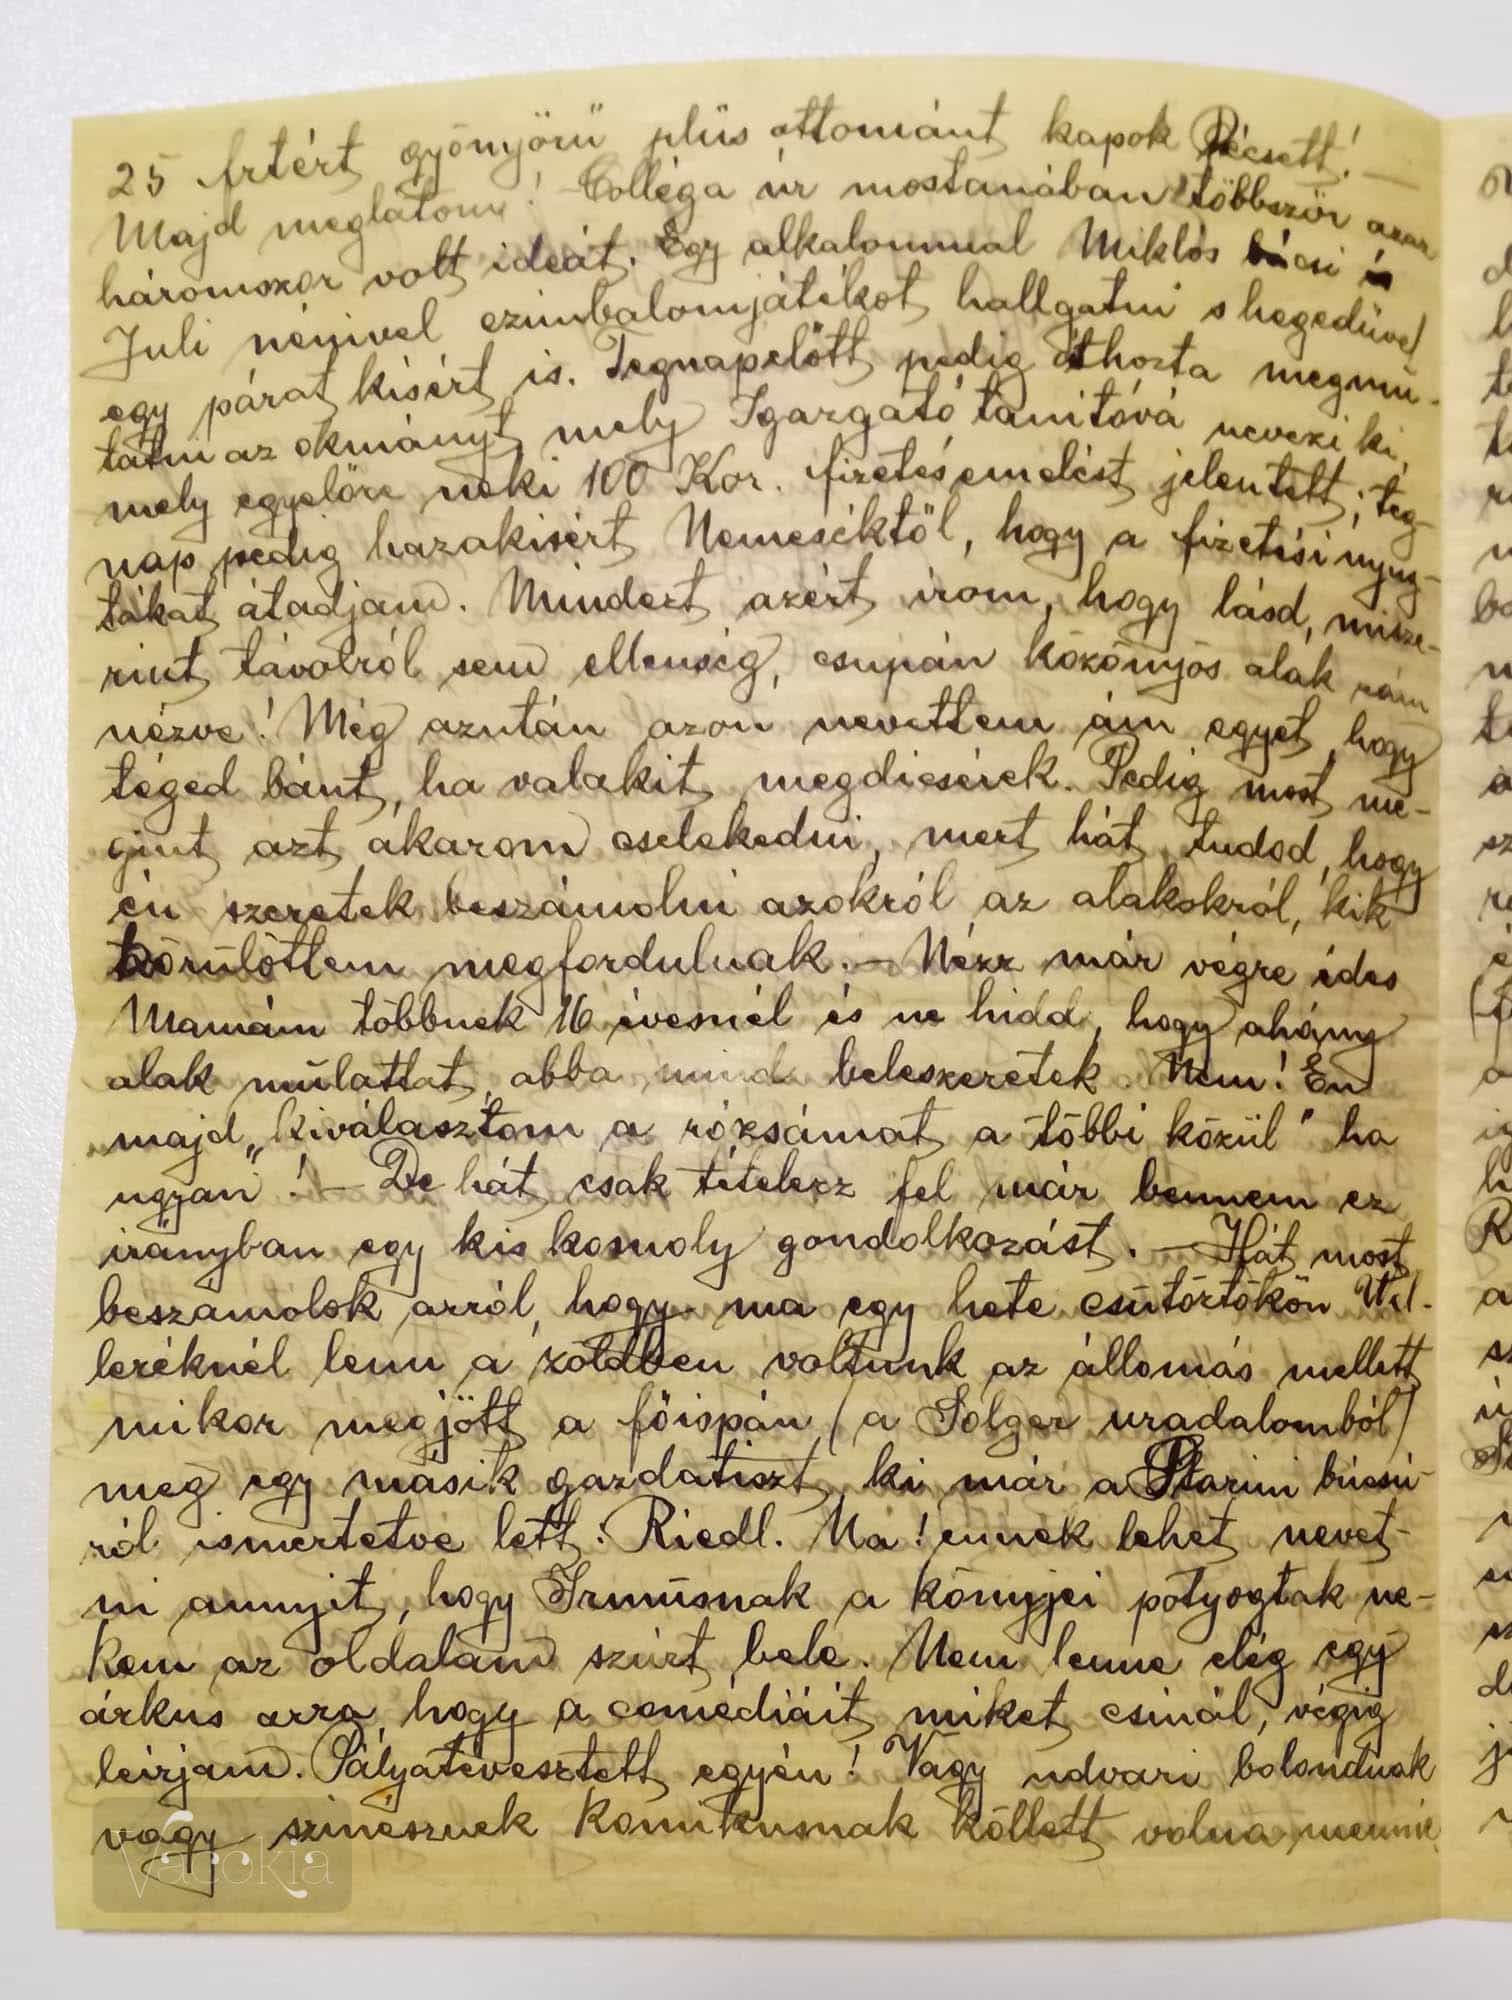 25 frtért gyönyörű plüs ottománt kapok Pécsett! —
Majd meglátom! — Colléga úr mostanában többször azaz
háromszor volt ideát. Egy alkalommal Miklós bácsi és
Juli nénivel czimbalomjátékot hallgatni s hegedüvel
egy párat kisért is. Tegnapelőtt pedig áthozta megmu-
tatni az okmányt, mely Igazgató tanitóvá nevezi ki,
mely egyelőre neki 100 Kor. fizetésemelést jelentett; teg-
nap pedig hazakisért Nemeséktől, hogy a fizetési nyug-
tákat átadjam. Mindezt azért irom, hogy lásd, misze-
rint távolról sem ellenség, csupán közönyös alak rám
nézve! Még azután azon nevettem ám egyet, hogy
téged bánt, ha valakit megdicsérek. Pedig most me-
gint azt akarom cselekedni, mert hát tudod, hogy
én szeretek beszámolni azokról az alakokról, kik
körülöttem megfordulnak. — Nézz már végre édes
Mamám többnek 16 évesnél és ne hidd, hogy ahány
alak mulattat, abba mind beleszeretek. Nem! Én
majd „kiválasztom a rózsámat a többi közül" ha
ugyan! — De hát csak tételezz fel már bennem ez
irányban egy kis komoly gondolkozást. — Hát most
beszámolok arról, hogy ma egy hete csütörtökön Wel-
leréknél lenn a zöldben voltunk az állomás mellett
mikor megjött a főispán (a Solger uradalomból)
meg egy másik gazdatiszt, ki már a Starini búcsú-
ról ismertetve lett: Riedl. Na! ennek lehet nevet-
ni annyit, hogy Irmusnak a könyjei potyogtak ne-
kem az oldalam szúrt bele. Nem lenne elég egy
árkus arra, hogy a comédiáit, miket csinál, végig
leirjam. Pályatévesztett egyén! Vagy udvari bolondnak
vagy szinésznek komikusnak köllett volna mennie
Vacokia